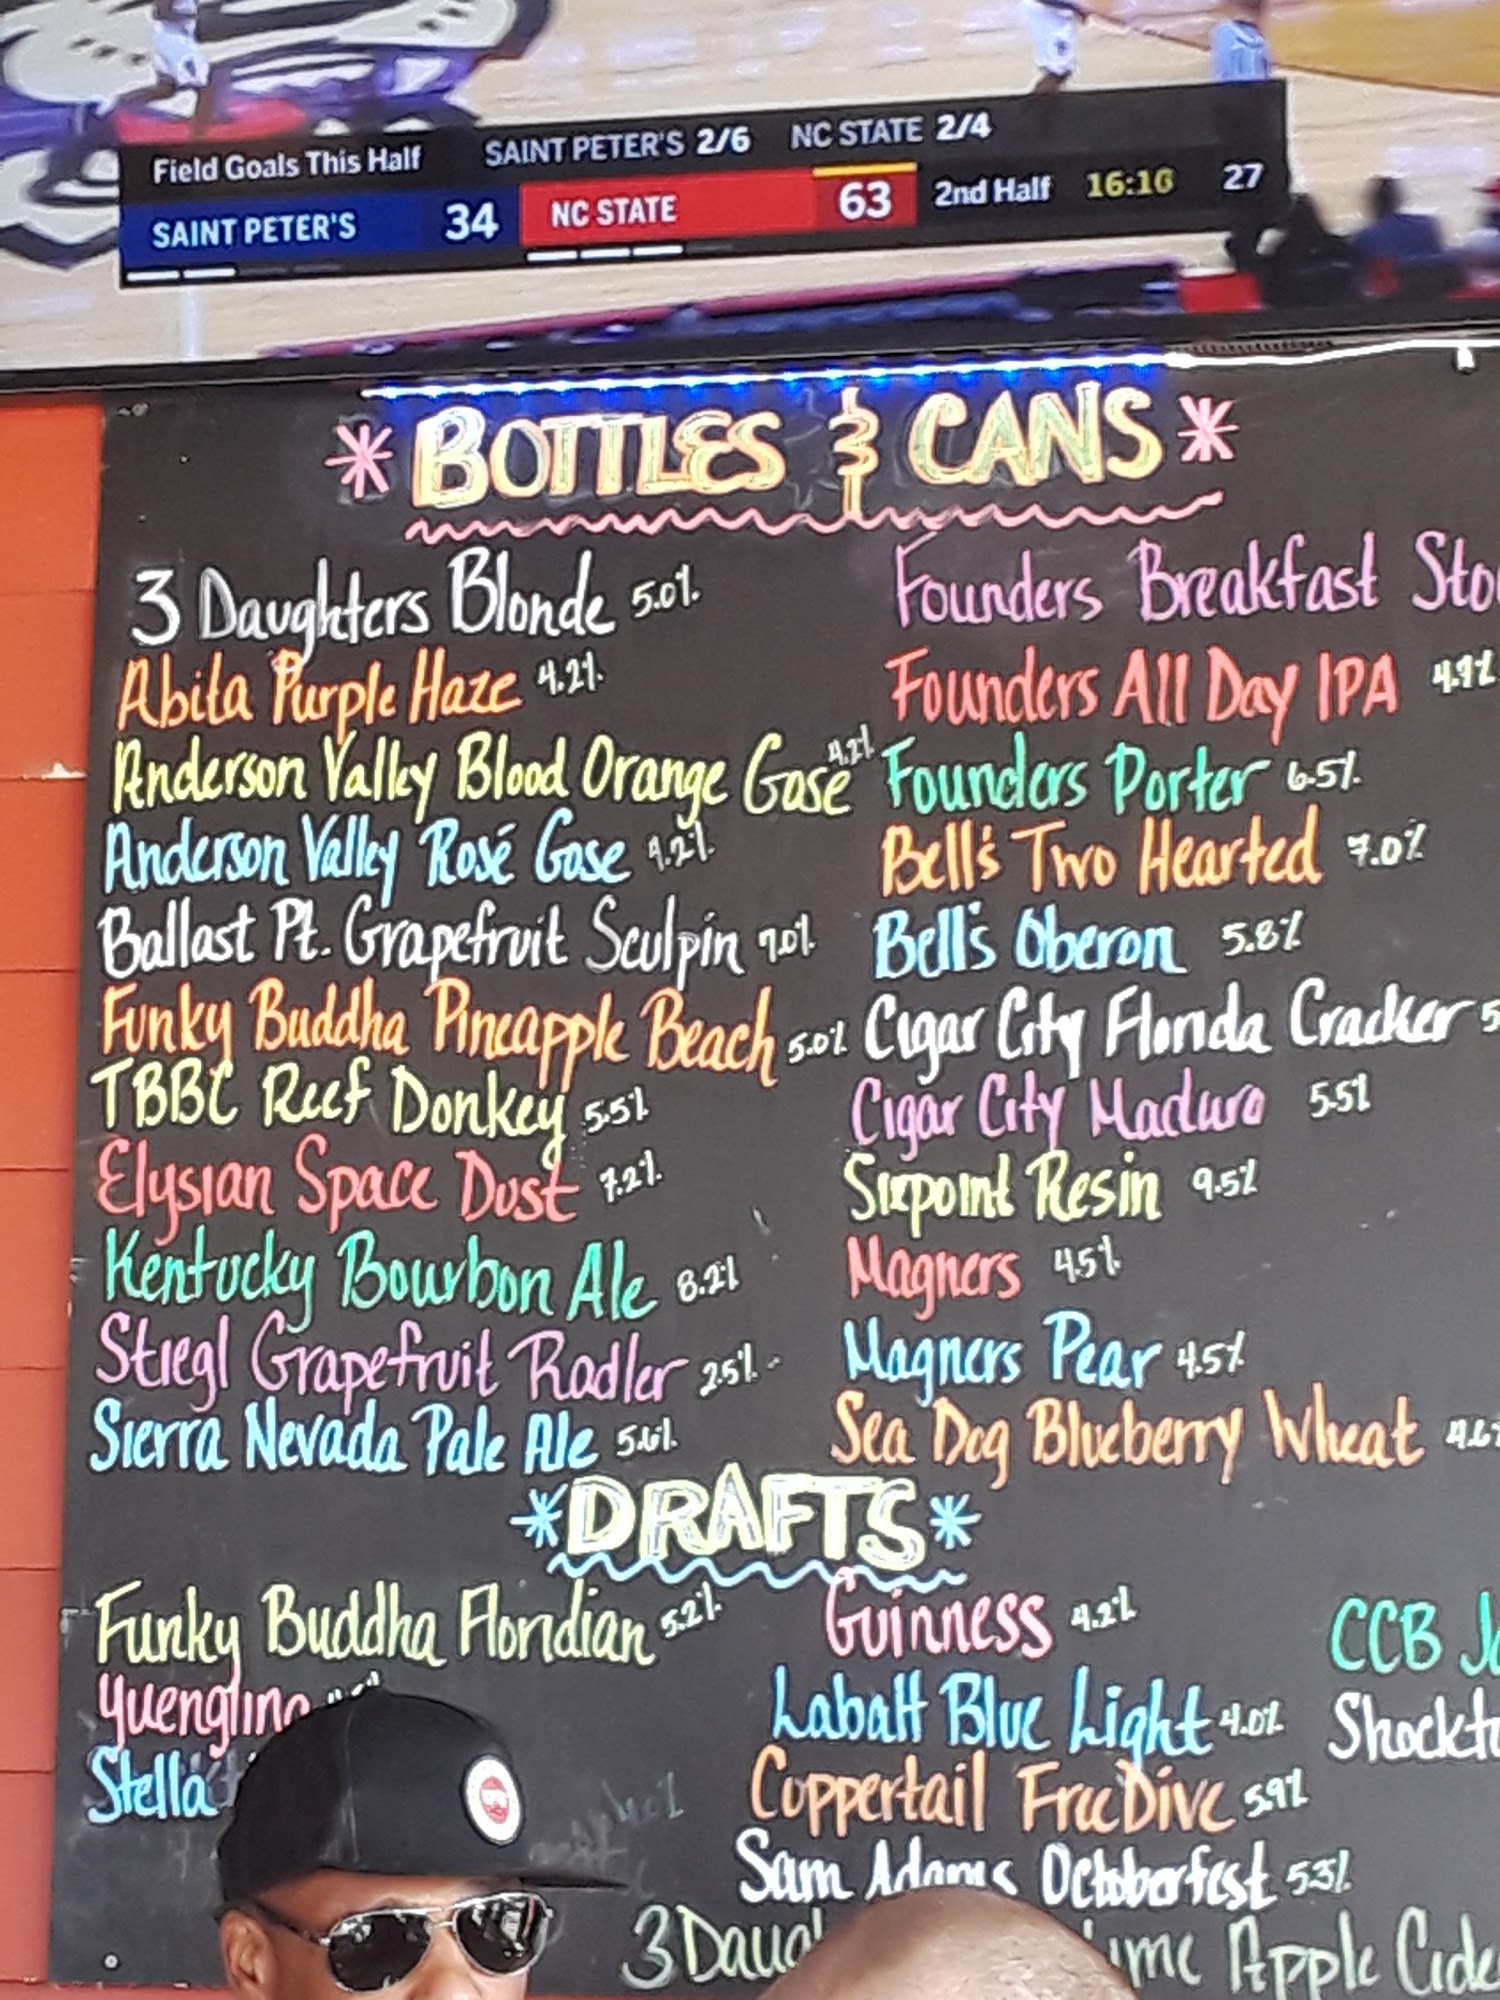 Field Goals This Half SAINT PETER'S 2/6 NC STATE 2/4
SAINT PETER'S 34 NC STATE 63 2nd Half 16:16 27
BOTTLES & CANS
3 Daughters Blonde 5.0%
Abita Purple Haze 4.2%
Anderson Valley Blood Orange Gose 4.2%
Anderson Valley Rosé Gose 4.2%
Ballast Pt. Grapefruit Sculpin 7.0%
Funky Buddha Pineapple Beach 5.0%
TBBC Reef Donkey 5.5%
Elysian Space Dust 7.2%
Kentucky Bourbon Ale 8.2%
Stiegl Grapefruit Radler 2.5%
Sierra Nevada Pale Ale 5.6%
Founders Breakfast Sto
Founders All Day IPA 4.7%
Founders Porter 6.5%
Bell's Two Hearted 7.0%
Bell's Oberon 5.8%
Cigar City Florida Cracker 5
Cigar City Maduro 5.5%
Sixpoint Resin 9.5%
Magners 4.5%
Magners Pear 4.5%
Sea Dog Blueberry Wheat 4.6%
DRAFTS
Funky Buddha Floridian 5.2%
Yuengling
Stella
Guinness 4.2%
Labatt Blue Light 4.0%
Coppertail Free Dive 5.9%
Sam Adams Octoberfest 5.3%
3 Daug ime Apple Cide
CCB J
Shockt